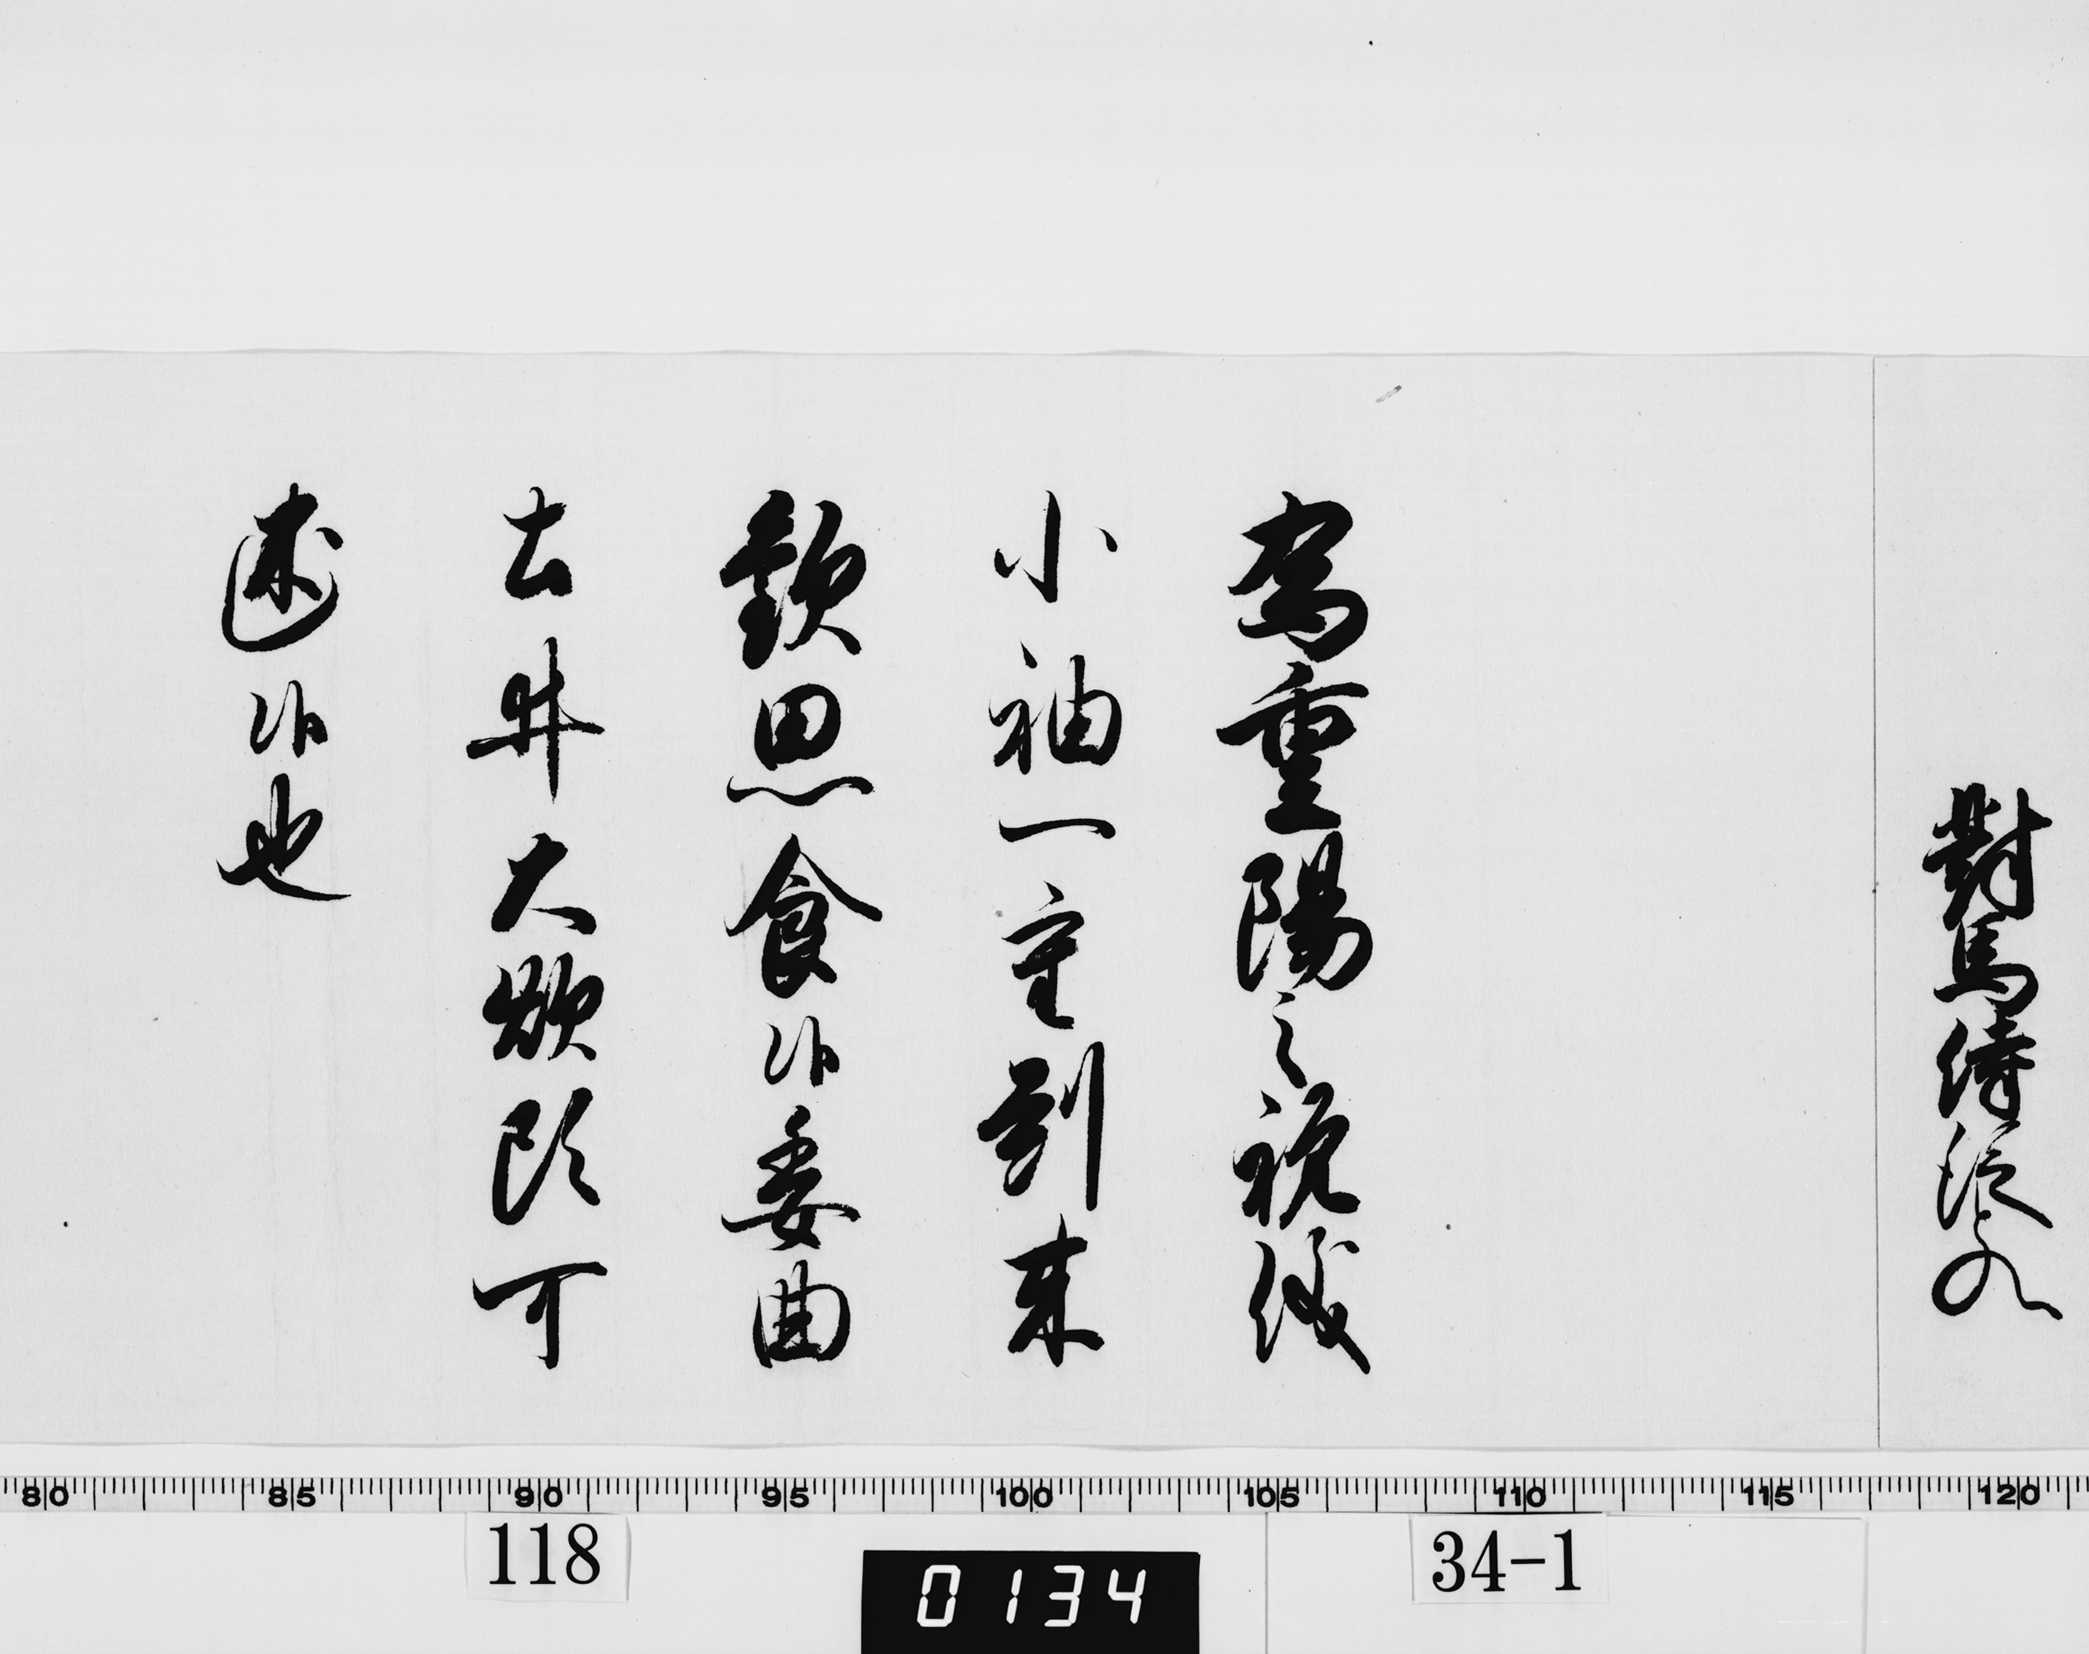 對馬侍従とのへ
為重陽之祝儀
小袖一重到来
歓思食候委曲
土井大炊頭可
述候也
80 85 90 95 100 105 110 115 120
118
0134
34-1